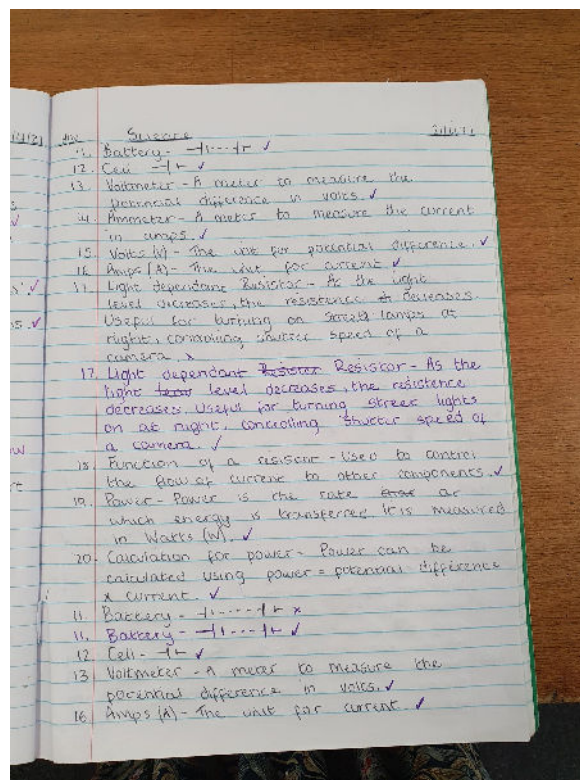 HW Science
11. Battery - ⊣ı---ı⊢ ✓
12. Cell ⊣ı⊢ ✓
13. Voltmeter - A meter to measure the
potencial difference in volts. ✓
14. Ammeter - A meter to measure the current
in amps. ✓
15. Volts (V) - The unit for potential difference. ✓
16. Amps (A) - The unit for current ✓
17. Light dependant Resistor - As the light
level increases, the resistence decreases.
Useful for turning on street lamps at
night, controlling shutter speed of a
camera. x
17. Light dependant Resistor - As the
light level decreases, the resistence
decreases. Useful for turning street lights
on at night, controlling shutter speed of
a camera. ✓
18. Function of a resistor - Used to control
the flow of current to other components. ✓
19. Power - Power is the rate at
which energy is transferred It is measured
in Watts (W). ✓
20. Calculation for power - Power can be
calculated using power = potential difference
x current. ✓
11. Battery - ⊣ı----ı⊢ x
11. Battery - ⊣ı---ı⊢ ✓
12 Cell - ⊣ı⊢ ✓
13 Voltmeter - A meter to measure the
potential difference in volts. ✓
16 Amps (A) - The unit for current. ✓